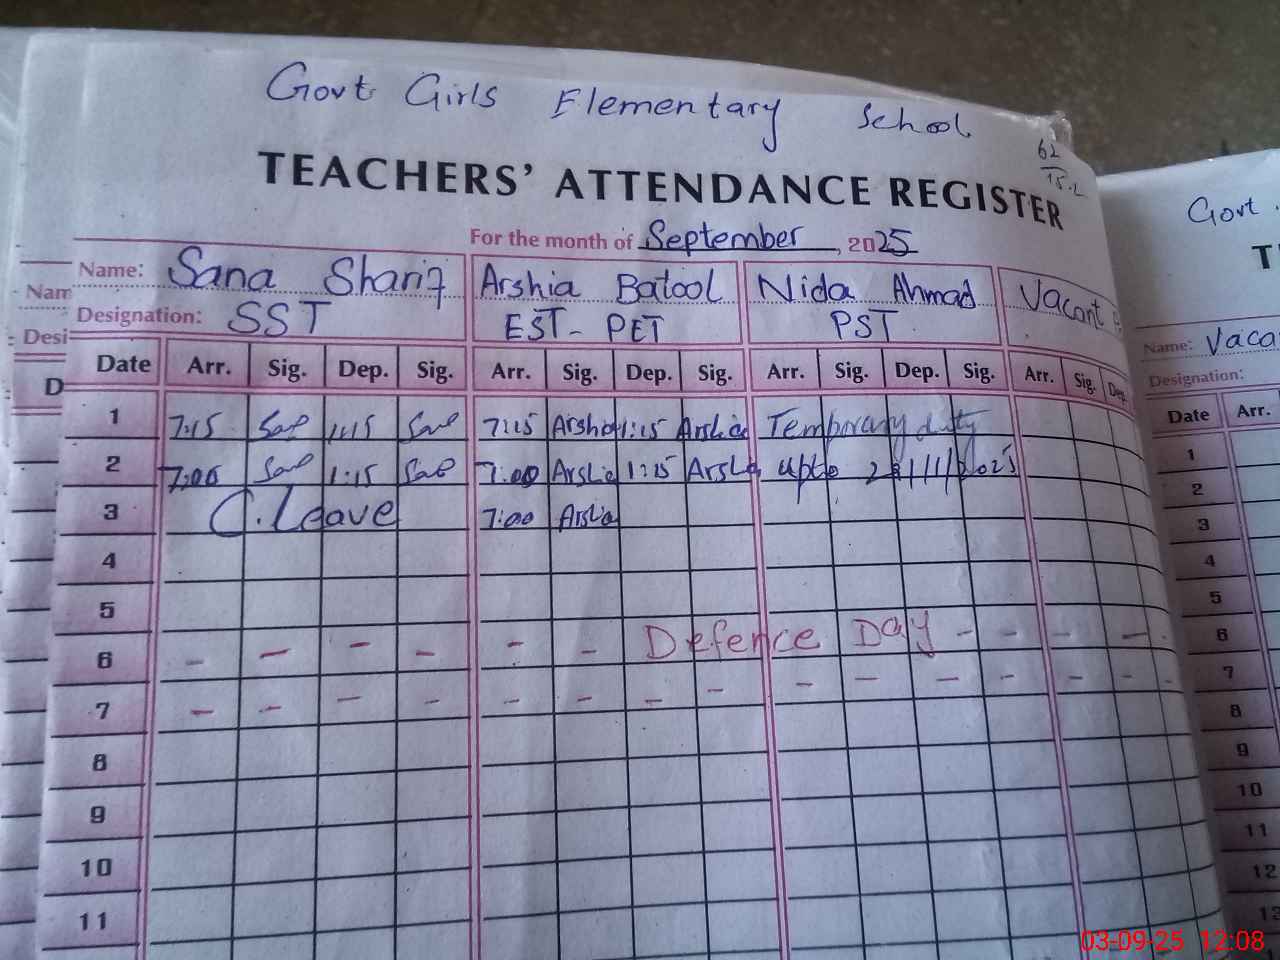 Govt. Girls Elementary School
62/15.L
TEACHERS' ATTENDANCE REGISTER
For the month of September, 2025
Name: Sana Sharif Arshia Batool Nida Ahmad Vacant
Designation: SST EST-PET PST
Date Arr. Sig. Dep. Sig. Arr. Sig. Dep. Sig. Arr. Sig. Dep. Sig. Arr. Sig. Dep.
1 7:15 1:15 7:15 Arshia 1:15 Arshia Temporary duty
2 7:00 1:15 7:00 Arshia 1:15 Arshia upto 28/11/2025
3 C.Leave 7:00 Arshia
4
5
6 - - - - - - Defence Day - - - -
7 - - - - - - - - - - - - - - -
8
9
10
11
Nam
Desi
D
Govt
T
Name: Vaca
Designation:
Date Arr.
1
2
3
4
5
6
7
8
9
10
11
12
13
03-09-25 12:08